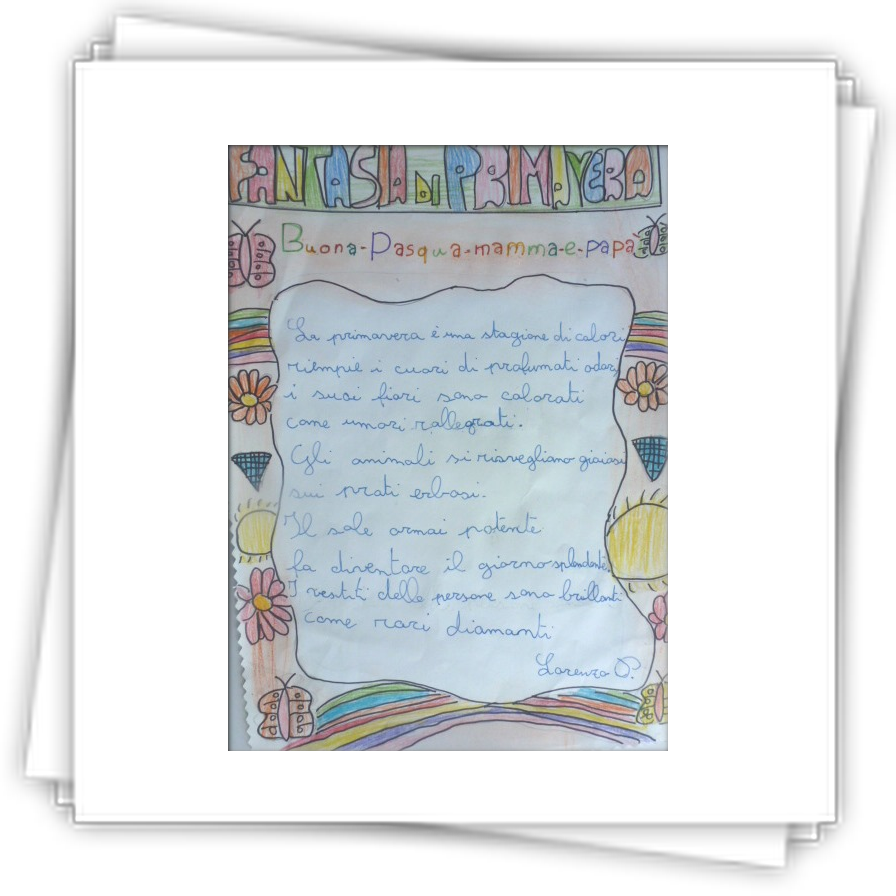 FANTASIA DI PRIMAVERA
Buona-Pasqua-mamma-e-papà
La primavera è una stagione di colori
riempie i cuori di profumati odori,
i suoi fiori sono colorati
come umori rallegrati.
Gli animali si risvegliano gioiosi
sui prati erbosi.
Il sole ormai potente
fa diventare il giorno splendente.
I vestiti delle persone sono brillanti
come rari diamanti
Lorenzo P.